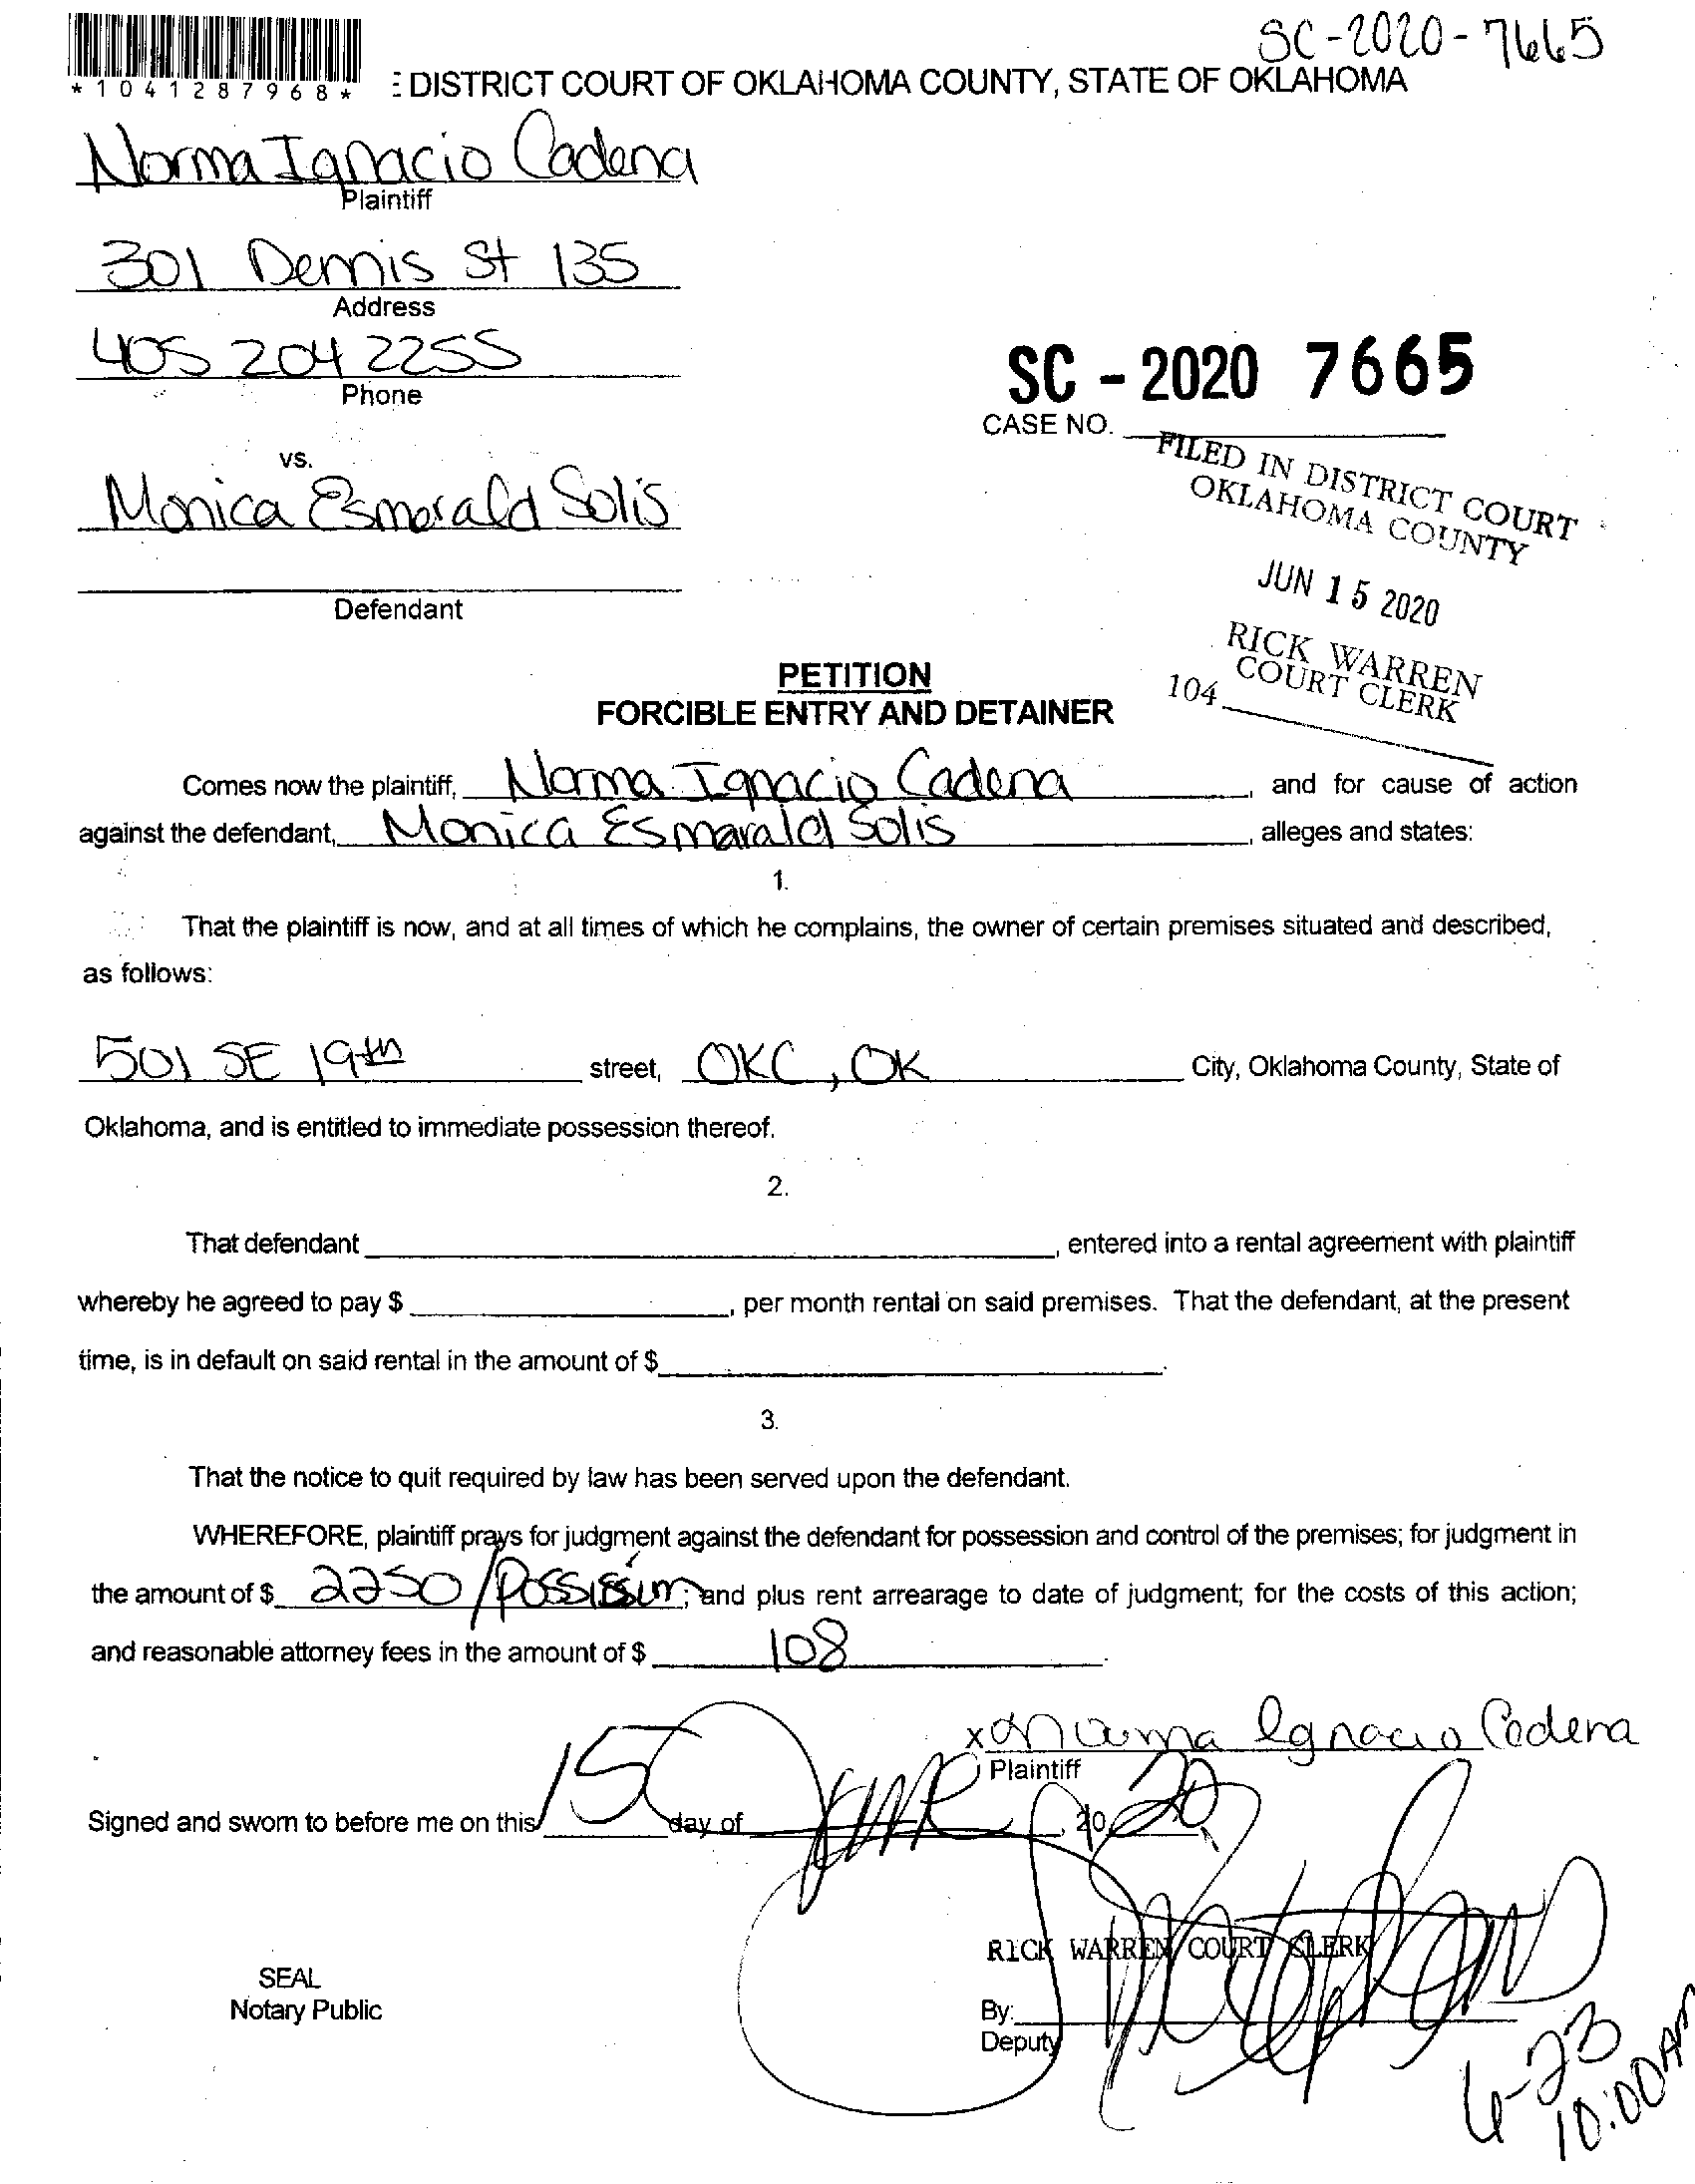 SC-2020-7665
*1041287968*
E DISTRICT COURT OF OKLAHOMA COUNTY, STATE OF OKLAHOMA
Norma Ignacio Cadena
Plaintiff
301 Dennis St 135
Address
405 204 2255
Phone
SC - 2020 7665
CASE NO.
vs.
FILED IN DISTRICT COURT
OKLAHOMA COUNTY
Monica Esmerald Solis
JUN 15 2020
Defendant
RICK WARREN
COURT CLERK
104
PETITION
FORCIBLE ENTRY AND DETAINER
Comes now the plaintiff, Norma Ignacio Cadena, and for cause of action
against the defendant, Monica Esmarald Solis, alleges and states:
1.
That the plaintiff is now, and at all times of which he complains, the owner of certain premises situated and described,
as follows:
501 SE 19th street, OKC, OK City, Oklahoma County, State of
Oklahoma, and is entitled to immediate possession thereof.
2.
That defendant , entered into a rental agreement with plaintiff
whereby he agreed to pay $ , per month rental on said premises. That the defendant, at the present
time, is in default on said rental in the amount of $ .
3.
That the notice to quit required by law has been served upon the defendant.
WHEREFORE, plaintiff prays for judgment against the defendant for possession and control of the premises; for judgment in
the amount of $ 2250/ ; and plus rent arrearage to date of judgment; for the costs of this action;
and reasonable attorney fees in the amount of $ 108.
x Norma Ignacio Cadena
Plaintiff
Signed and sworn to before me on this 15 day of June, 20 20
RICK WARREN COURT CLERK
SEAL
Notary Public
By:
Deputy
6-23
10:00AM